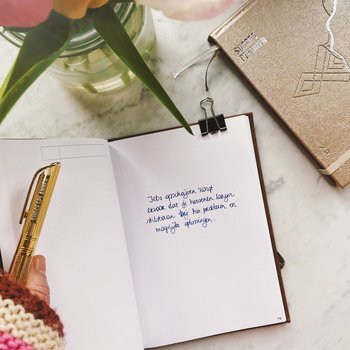 SIMPLE
PLANNER
Iets opschrijven zorgt
ervoor dat je hersenen langer
stilstaan bij het probleem en
mogelijke oplossingen.